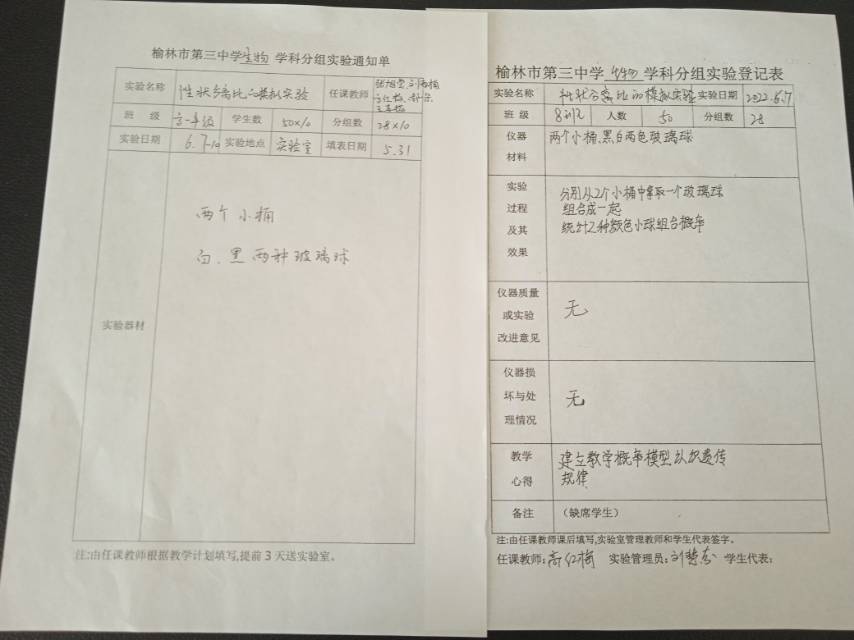 榆林市第三中学生物 学科分组实验通知单
实验名称 性状分离比的模拟实验 任课教师
班 级 高一年级 学生数 50×10 分组数 28×10
实验日期 6.7-10 实验地点 实验室 填表日期 5.31
实验器材
两个小桶
白、黑两种玻璃球
注:由任课教师根据教学计划填写,提前3天送实验室。
榆林市第三中学 生物 学科分组实验登记表
实验名称 性状分离比的模拟实验 实验日期 2022.6.7
班 级 人数 50 分组数 28
仪器
材料
两个小桶、黑白两色玻璃球
实验
过程
及其
效果
分别从2个小桶中拿取一个玻璃球
组合成一起
统计2种颜色小球组合概率
仪器质量
或实验
改进意见
无
仪器损
坏与处
理情况
无
教学
心得
建立数学概率模型认识遗传
规律
备注 (缺席学生)
注:由任课教师课后填写,实验室管理教师和学生代表签字。
任课教师:高红梅 实验管理员: 学生代表: